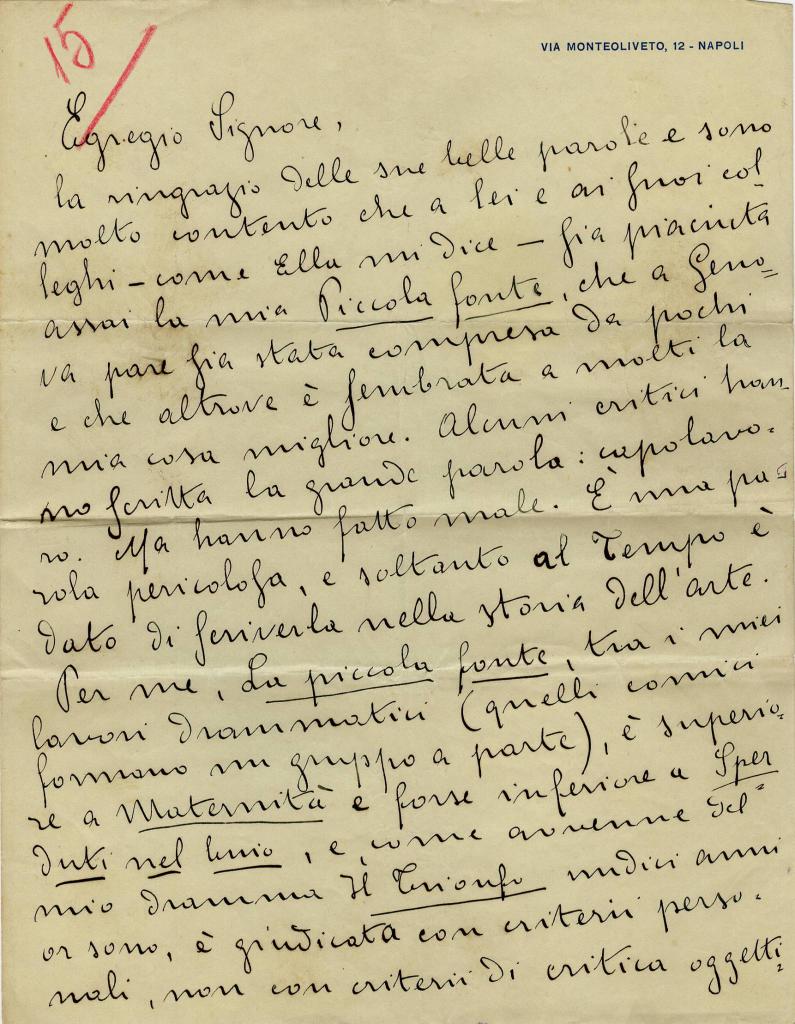 15
VIA MONTEOLIVETO, 12 - NAPOLI
Egregio Signore,
la ringrazio delle sue belle parole e sono
molto contento che a lei e ai suoi col-
leghi – come Ella mi dice – sia piaciuta
assai la mia Piccola fonte, che a Geno=
va pare sia stata compresa da pochi
e che altrove è sembrata a molti la
mia cosa migliore. Alcuni critici han-
no scritta la grande parola: capolavo-
ro. Ma hanno fatto male. È una pa=
rola pericolosa, e soltanto al Tempo è
dato di scriverla nella storia dell'arte.
Per me, La piccola fonte, tra i miei
lavori drammatici (quelli comici
formano un gruppo a parte), è superio-
re a Maternità e forse inferiore a Sper
duti nel buio, e, come avvenne del
mio dramma Il Trionfo undici anni
or sono, è giudicata con criterii perso-
nali, non con criterii di critica oggetti